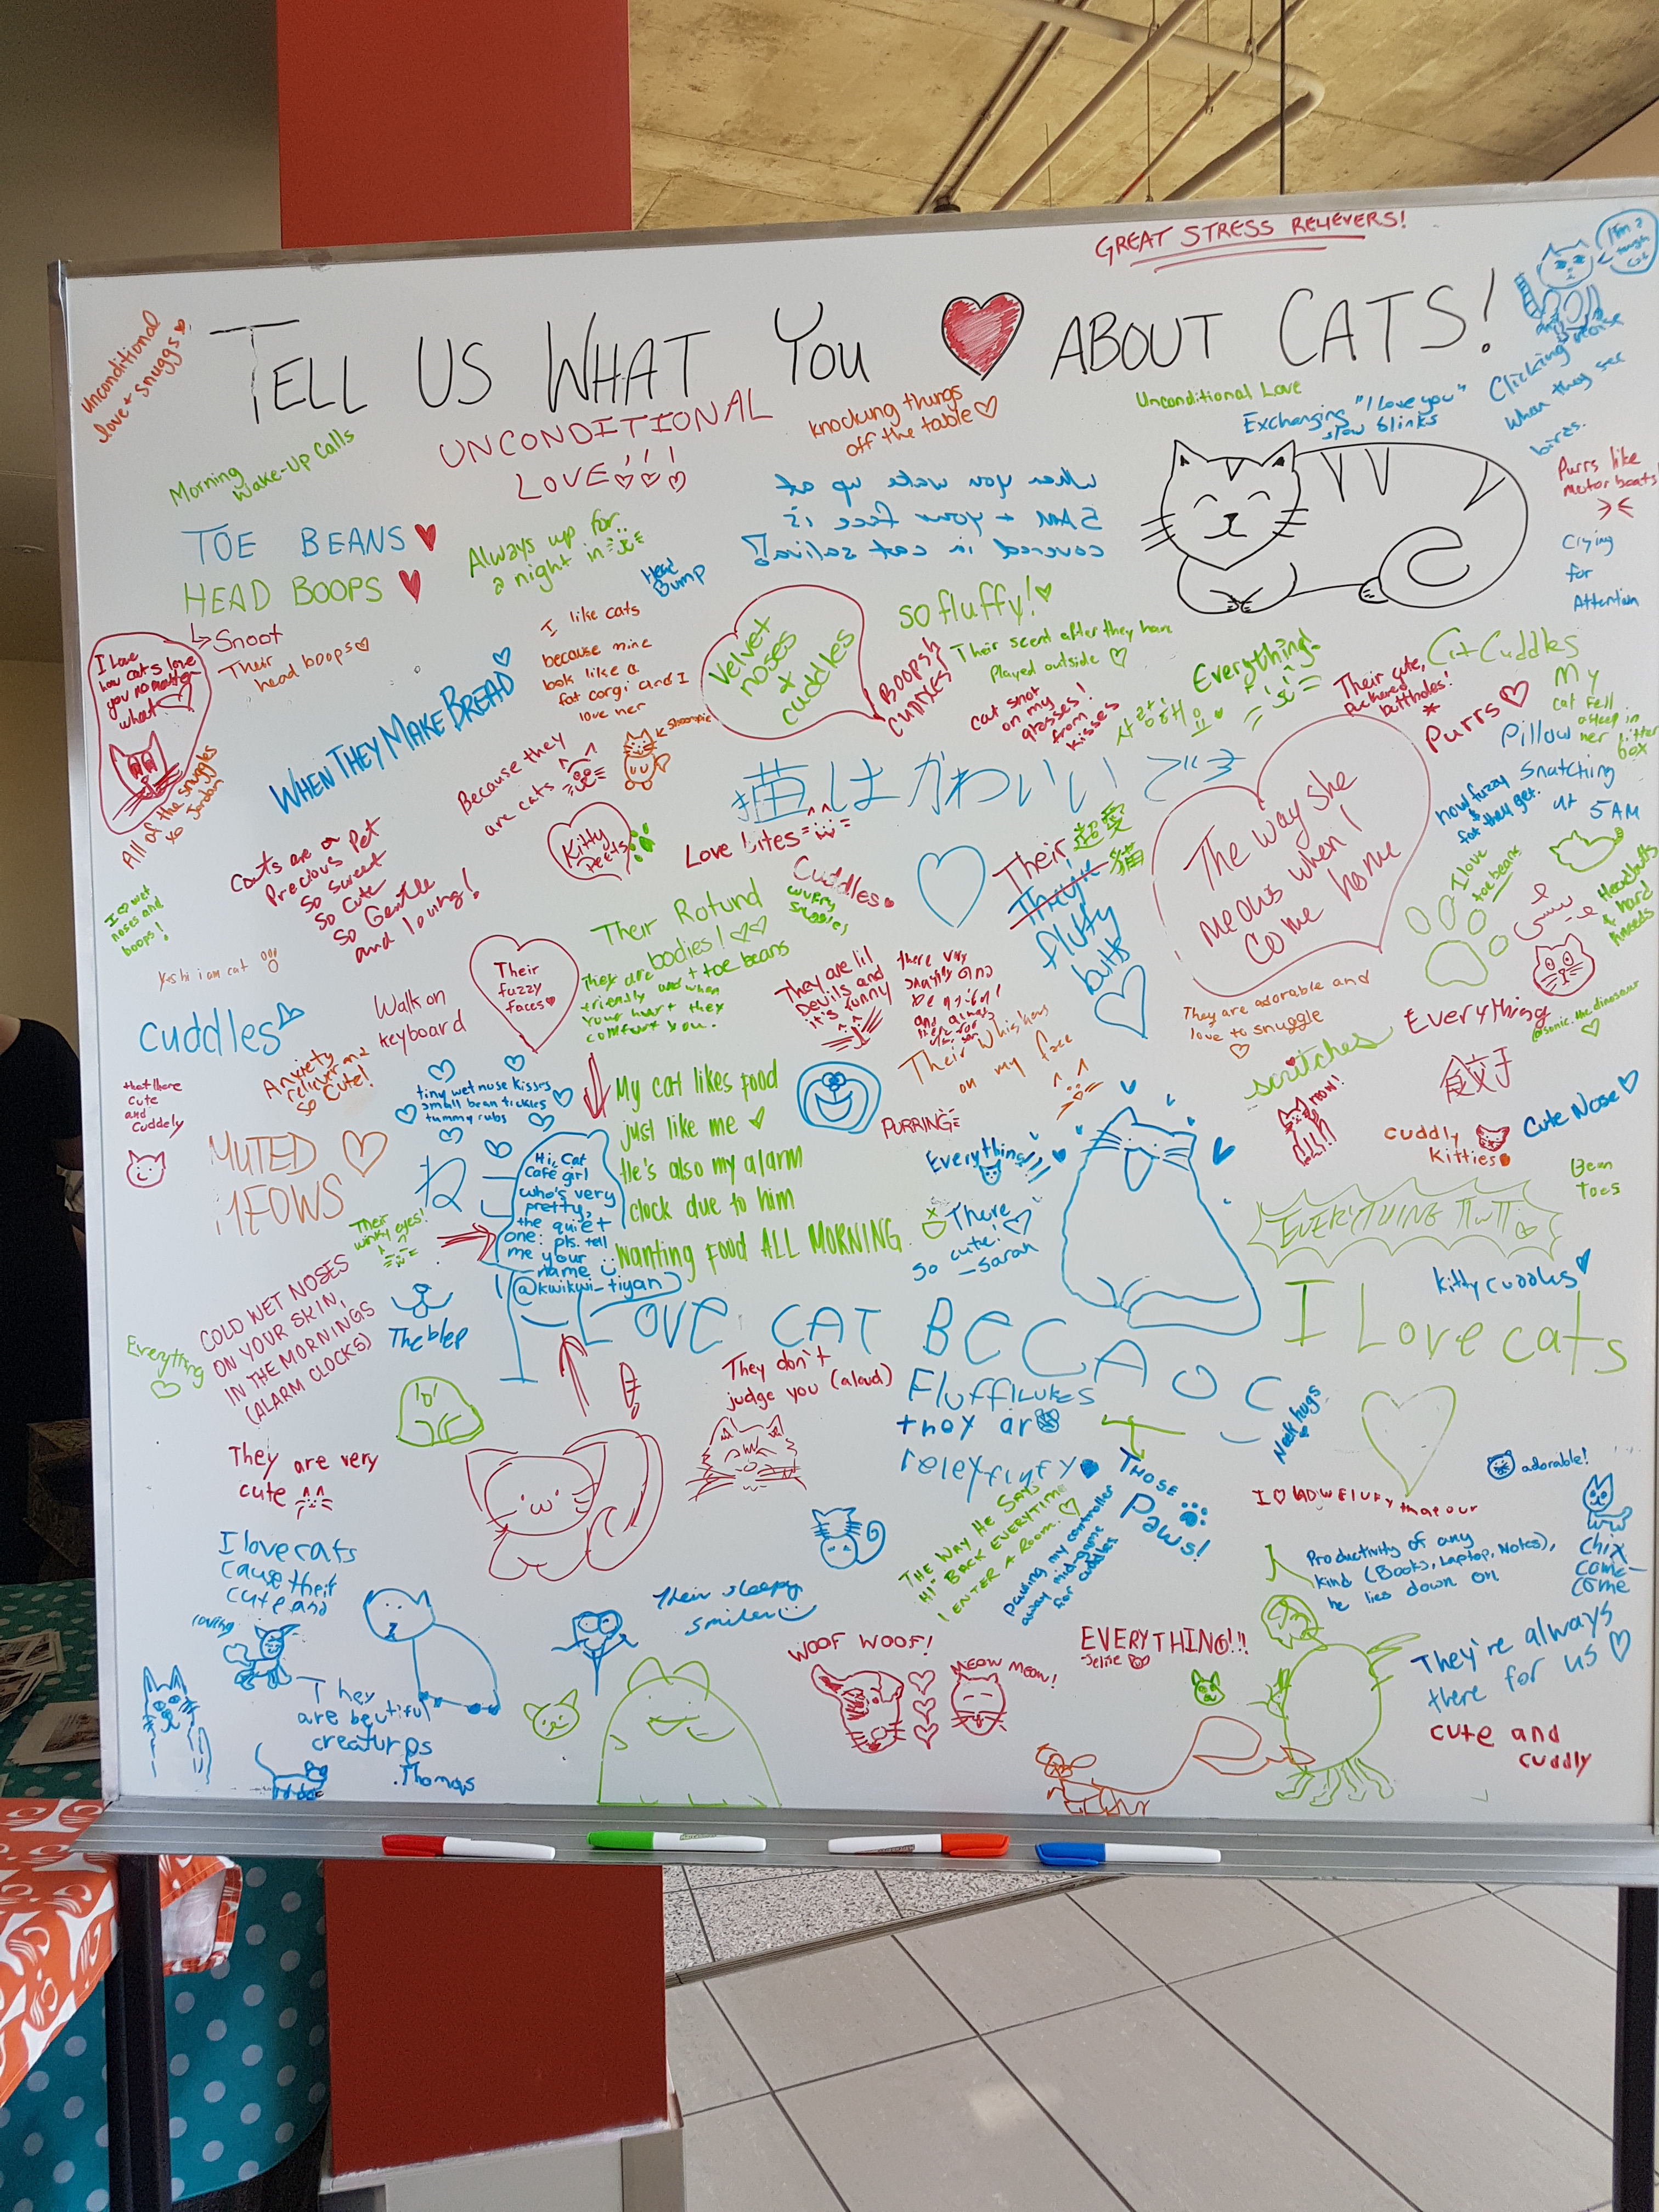 GREAT STRESS RELIEVERS!
I'm a
tough
cat
TELL US WHAT YOU ABOUT CATS!
Unconditional
love + snuggs
Morning
Wake-Up Calls
UNCONDITIONAL
LOVE!!!
knocking things
off the table
Unconditional Love
Exchanging "I love you"
slow blinks
Clicking noise
when they see
birds.
Purrs like
motor boats!
Crying
for
Attention
TOE BEANS
HEAD BOOPS
Snoot
Their
head boops
Always up for
a night in
Head
Bump
When you wake up at
5AM + your face is
covered in cat saliva!
I Love
how cats love
you no matter
what
All of the snuggles
xo Jordan
WHEN THEY MAKE BREAD
I like cats
because mine
look like a
fat corgi and I
love her
Velvet
noses
+
cuddles
so fluffy!
Their scent after they have
Played outside
cat snot
on my
glasses!
from
kisses
사랑해요
Everything!
Their cute,
puckered
buttholes!
Cat Cuddles
Purrs
My
cat fell
asleep in
her litter
box
Pillow
Snatching
at 5AM
how fuzzy
& fat they get.
Because they
are cats
Kitty
Peets
猫はかわいいです
Love bites
Cuddles
Their
They're
fluffy
butts
超愛
猫
The way she
meows when I
come home
I love
toe beans
Headbutts
& hard
kneeds
Cats are a
Precious Pet
so sweet
so cute
so Gentle
and loving!
I wet
noses and
boops!
Yes hi i am cat
Their
fuzzy
faces
Their Rotund
bodies!
+ toe beans
They are
friendly and when
your hurt they
comfort you.
They are lil
Devils and
it's funny
Their whiskers
on my face
They are adorable and
love to snuggle
Everything
@sonic.the.dinosaur
cuddles
Walk on
keyboard
Anxiety
reliever and
so cute!
that there
cute
and
cuddely
tiny wet nose kisses
small bean tickles
tummy rubs
My cat likes food
just like me
He's also my alarm
clock due to him
wanting food ALL MORNING.
PURRING
scritches
餃子
cuddly
kitties
Cute Nose
Bean
Toes
MUTED
MEOWS
Their
winky eyes!
Hi, Cat
Café girl
who's very
pretty,
the quiet
one: pls. tell
me your
name
@kwikwi_tiyan
Everything
There
so cute!
-Sarah
EVERYTHING
kitty cuddles
COLD WET NOSES
ON YOUR SKIN,
IN THE MORNINGS
(ALARM CLOCKS)
Everything
The blep
I LOVE CAT BECAOC
I Love cats
They don't
judge you (aloud)
Neck hugs
They are very
cute
THE WAY HE SAYS
"HI" BACK EVERYTIME
I ENTER A ROOM.
pawing my controller
away mid-game
for cuddles
THOSE
Paws!
adorable!
Productivity of any
kind (Books, Laptop, Notes),
he lies down on
chix
come-
come
I love cats
cause their
cute and
loving
Their sleepy
smiles
WOOF WOOF!
MEOW MEOW!
EVERYTHING!!!
They're always
there for us
cute and
cuddly
They
are beutiful
creaturps
.Thomas